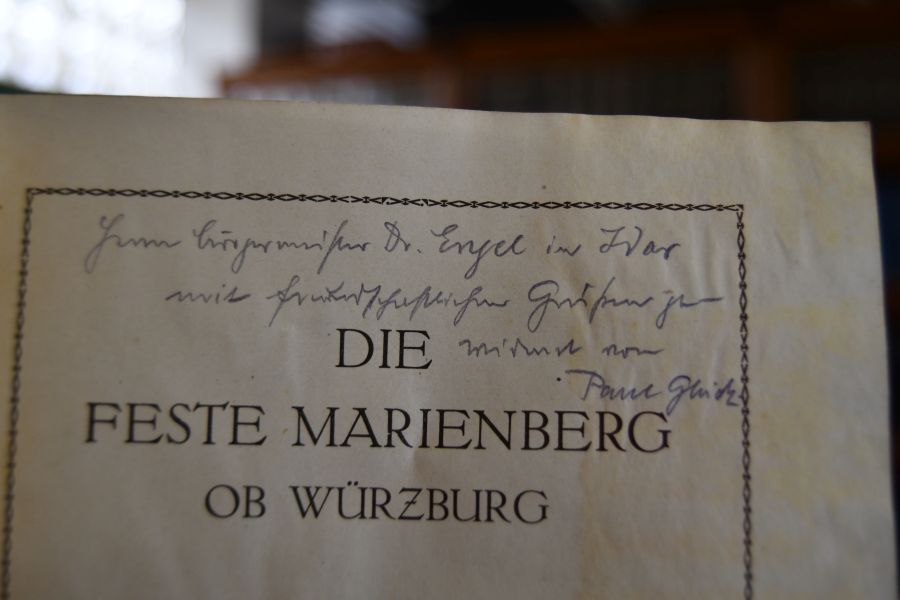 Herrn Bürgermeister Dr. Engel in Idar
mit freundschaftlichen Grüßen ge-
widmet von
Paul Glück
DIE
FESTE MARIENBERG
OB WÜRZBURG